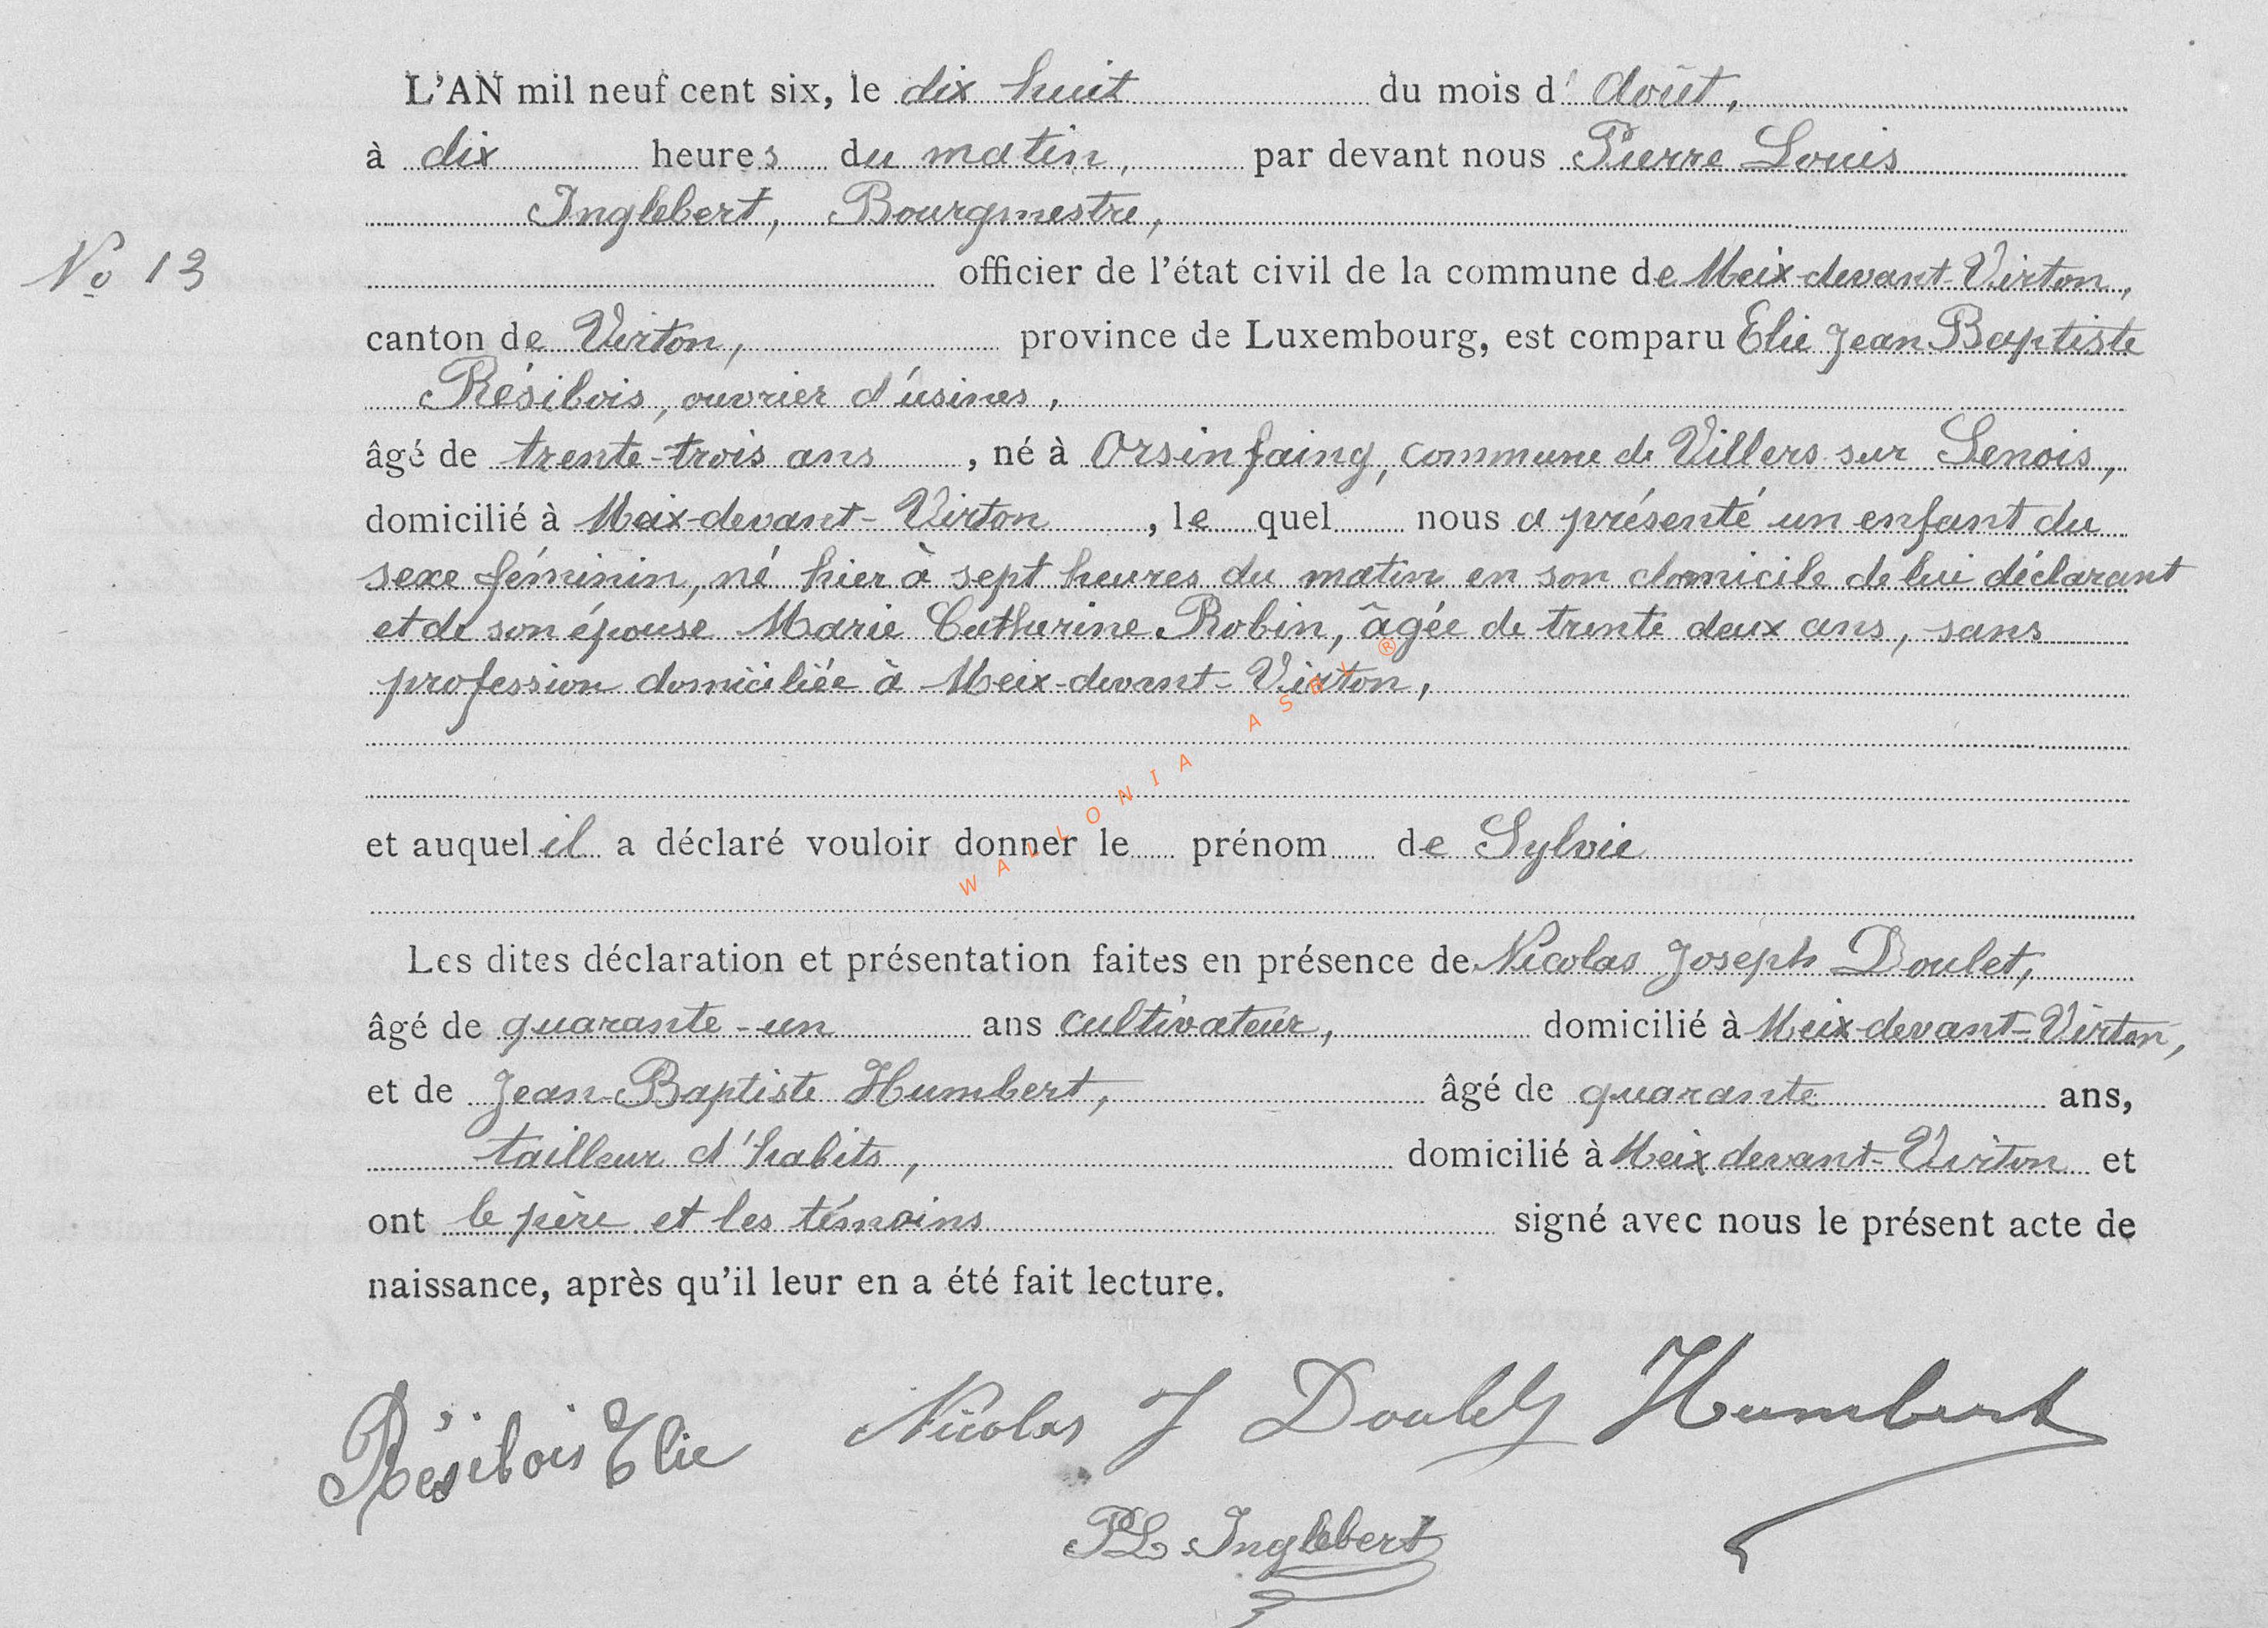 L'AN mil neuf cent six, le dix huit du mois d' Août,
à dix heures du matin, par devant nous Pierre Louis
Inglebert, Bourgmestre,
No 13
officier de l'état civil de la commune de Meix-devant-Virton,
canton de Virton, province de Luxembourg, est comparu Elie Jean Baptiste
Résibois, ouvrier d'usines,
âgé de trente-trois ans, né à Orsinfaing, commune de Villers sur Senois,
domicilié à Meix-devant-Virton, lequel nous a présenté un enfant du
sexe féminin, né hier à sept heures du matin en son domicile de lui déclarant
et de son épouse Marie Catherine Robin, âgée de trente deux ans, sans
profession domiciliée à Meix-devant-Virton,
et auquel il a déclaré vouloir donner le prénom de Sylvie
Les dites déclaration et présentation faites en présence de Nicolas Joseph Doulet,
âgé de quarante-un ans cultivateur, domicilié à Meix-devant-Virton,
et de Jean-Baptiste Humbert, âgé de quarante ans,
tailleur d'habits, domicilié à Meix devant-Virton et
ont le père et les témoins signé avec nous le présent acte de
naissance, après qu'il leur en a été fait lecture.
Résibois Elie Nicolas J Doulet Humbert
PL Inglebert
WALLONIA ASBL ®